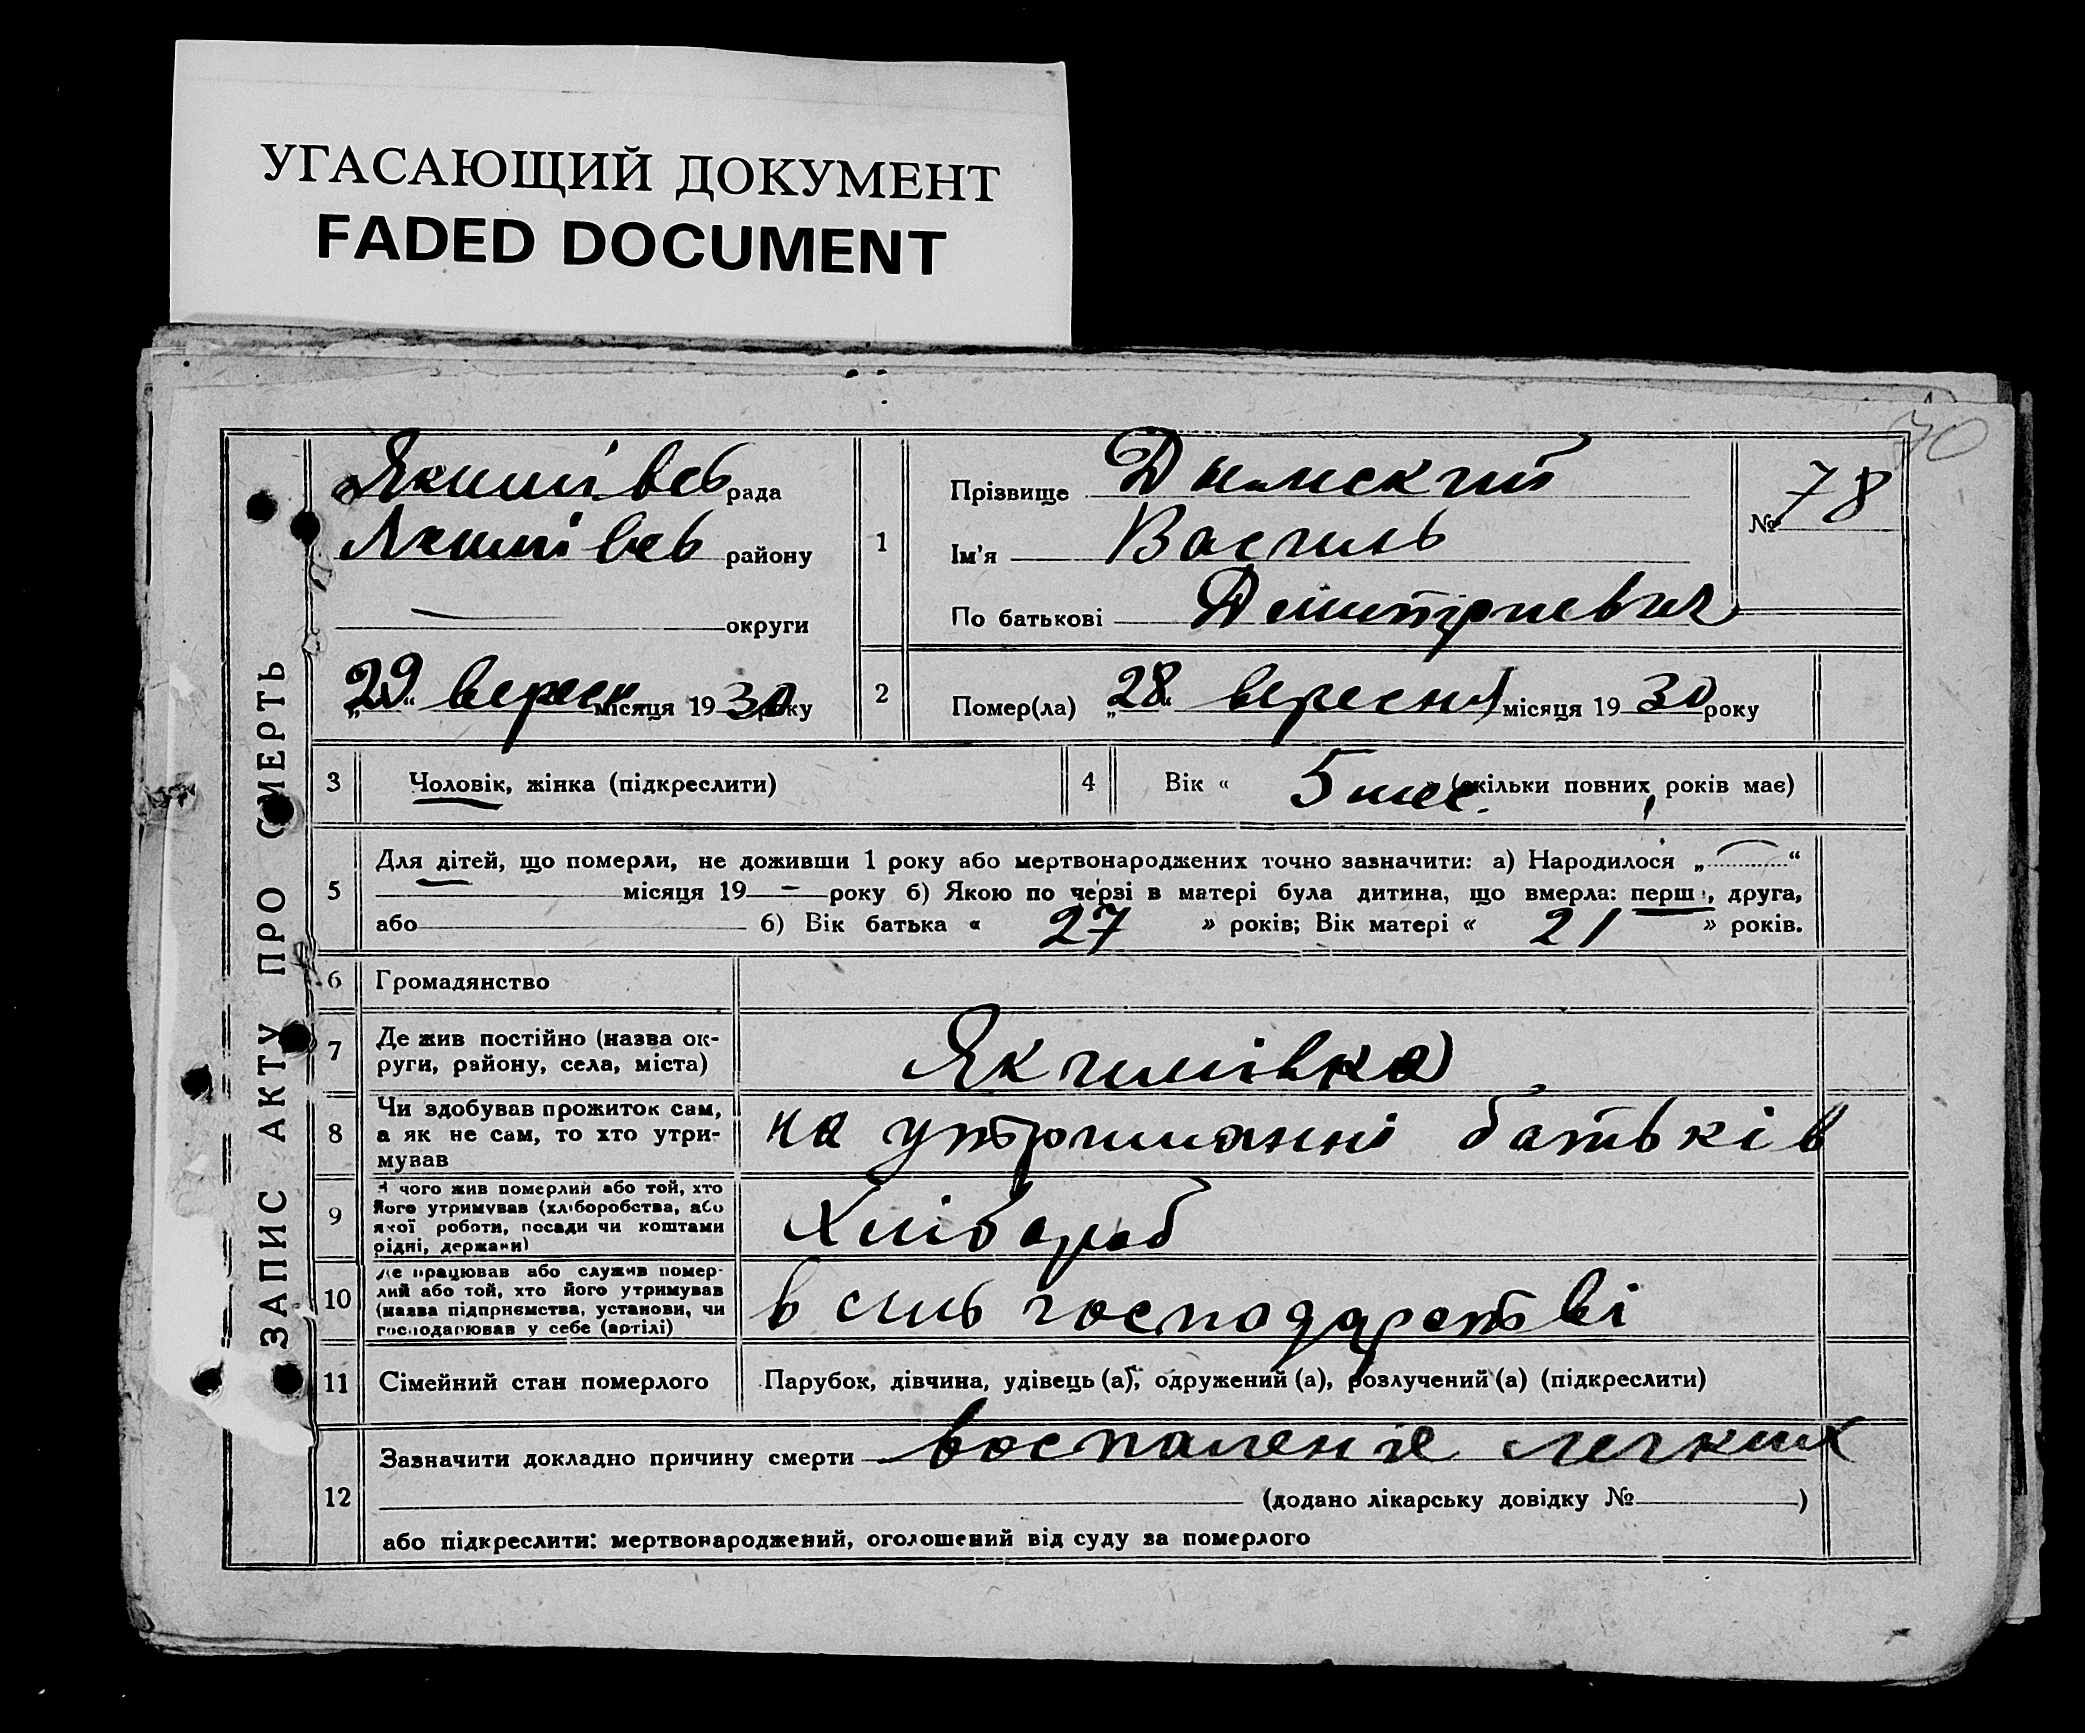 УГАСАЮЩИЙ ДОКУМЕНТ
FADED DOCUMENT
70
ЗАПИС АКТУ ПРО СМЕРТЬ
Якимівсь рада
Якимівсь району
округи
„29“ вересн місяця 1930 року
1
Прізвище Дымский
Ім'я Василь
По батькові Дмитриевич
№ 78
2
Помер(ла) „28“ вересня місяця 1930 року
3
Чоловік, жінка (підкреслити)
4
Вік « 5 мес. (скільки повних років має)
5
Для дітей, що померли, не доживши 1 року або мертвонароджених точно зазначити: а) Народилося „ “
місяця 19 — року б) Якою по черзі в матері була дитина, що вмерла: перша, друга,
або б) Вік батька « 27 » років; Вік матері « 21 » років.
6
Громадянство
7
Де жив постійно (назва ок-
руги, району, села, міста)
Якимівка
8
Чи здобував прожиток сам,
а як не сам, то хто утри-
мував
на утриманні батьків
9
З чого жив померлий або той, хто
його утримував (хліборобства, або
якої роботи, посади чи коштами
рідні, держави)
Хлібороб
10
Де працював або служив помер-
лий або той, хто його утримував
(назва підприємства, установи, чи
господарював у себе (артілі)
в сель господарстві
11
Сімейний стан померлого
Парубок, дівчина, удівець (а), одружений (а), розлучений (а) (підкреслити)
12
Зазначити докладно причину смерти воспаление легких
(додано лікарську довідку № )
або підкреслити: мертвонароджений, оголошений від суду за померлого